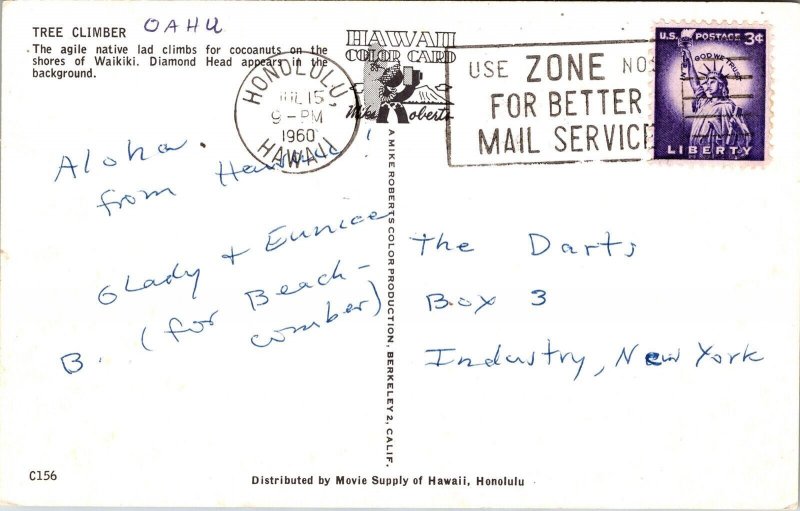 TREE CLIMBER OAHU
The agile native lad climbs for cocoanuts on the
shores of Waikiki. Diamond Head appears in the
background.
HAWAII
COLOR CARD
Mike Roberts
HONOLULU,
JUL 15
9-PM
1960
HAWAII
USE ZONE NOS
FOR BETTER
MAIL SERVICE
U.S. POSTAGE 3¢
IN GOD WE TRUST
LIBERTY
Aloha.
from Hawaii!
Glady + Eunice
B. (for Beach-
comber)
A MIKE ROBERTS COLOR PRODUCTION, BERKELEY 2, CALIF.
The Darts
Box 3
Industry, New York
C156
Distributed by Movie Supply of Hawaii, Honolulu